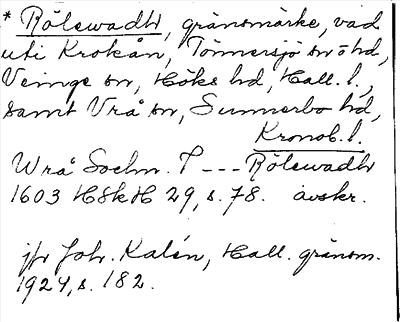 * Rölewadhr, gränsmärke, vad
uti Krokån, Tönnersjö sn o hd,
Veinge sn, Höks hd, Hall. l.,
samt Vrå sn, Sunnerbo hd,
Kronob. l.
Wrå Sochn. P --- Rölewadhr
1603 HSkH 29, s. 78. avskr.
jfr Joh. Kalén, Hall. gränsm.
1924, s. 182.